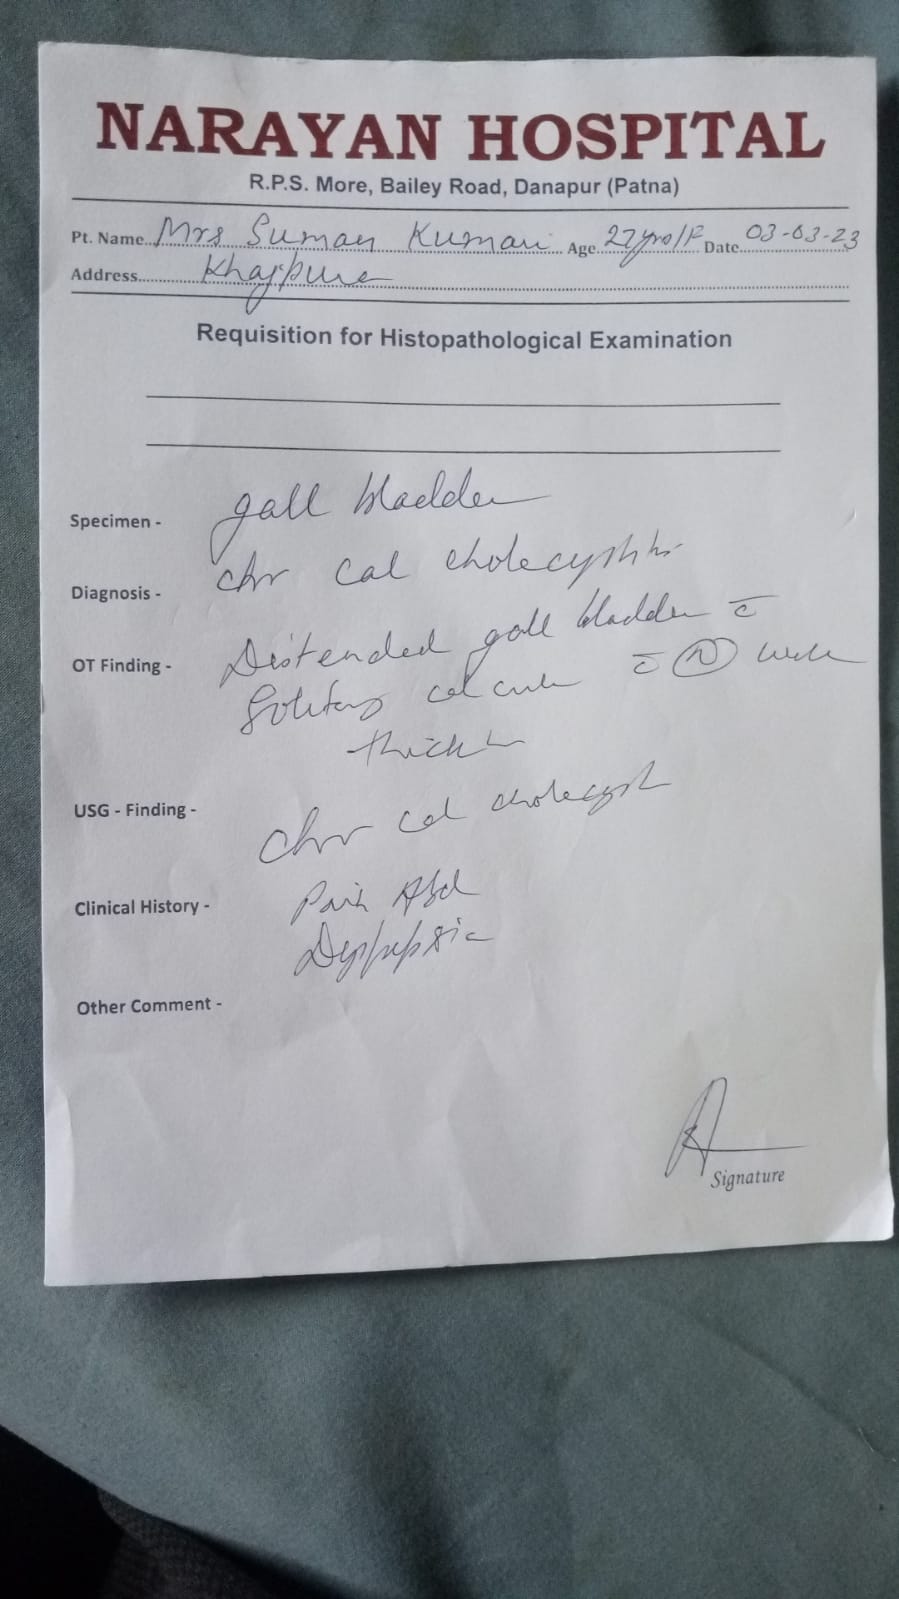 NARAYAN HOSPITAL
R.P.S. More, Bailey Road, Danapur (Patna)
Pt. Name Mrs Suman Kumari Age 27yrs/F Date 03-03-23
Address Khajpura
Requisition for Histopathological Examination
Specimen - gall bladder
Diagnosis - chr cal cholecystitis
OT Finding - Distended gall bladder c̄
Solitary calculi c̄ (N) wall
thickn
USG - Finding - Chr cal cholecyst
Clinical History - Pain Abd
Dyspepsia
Other Comment -
Signature